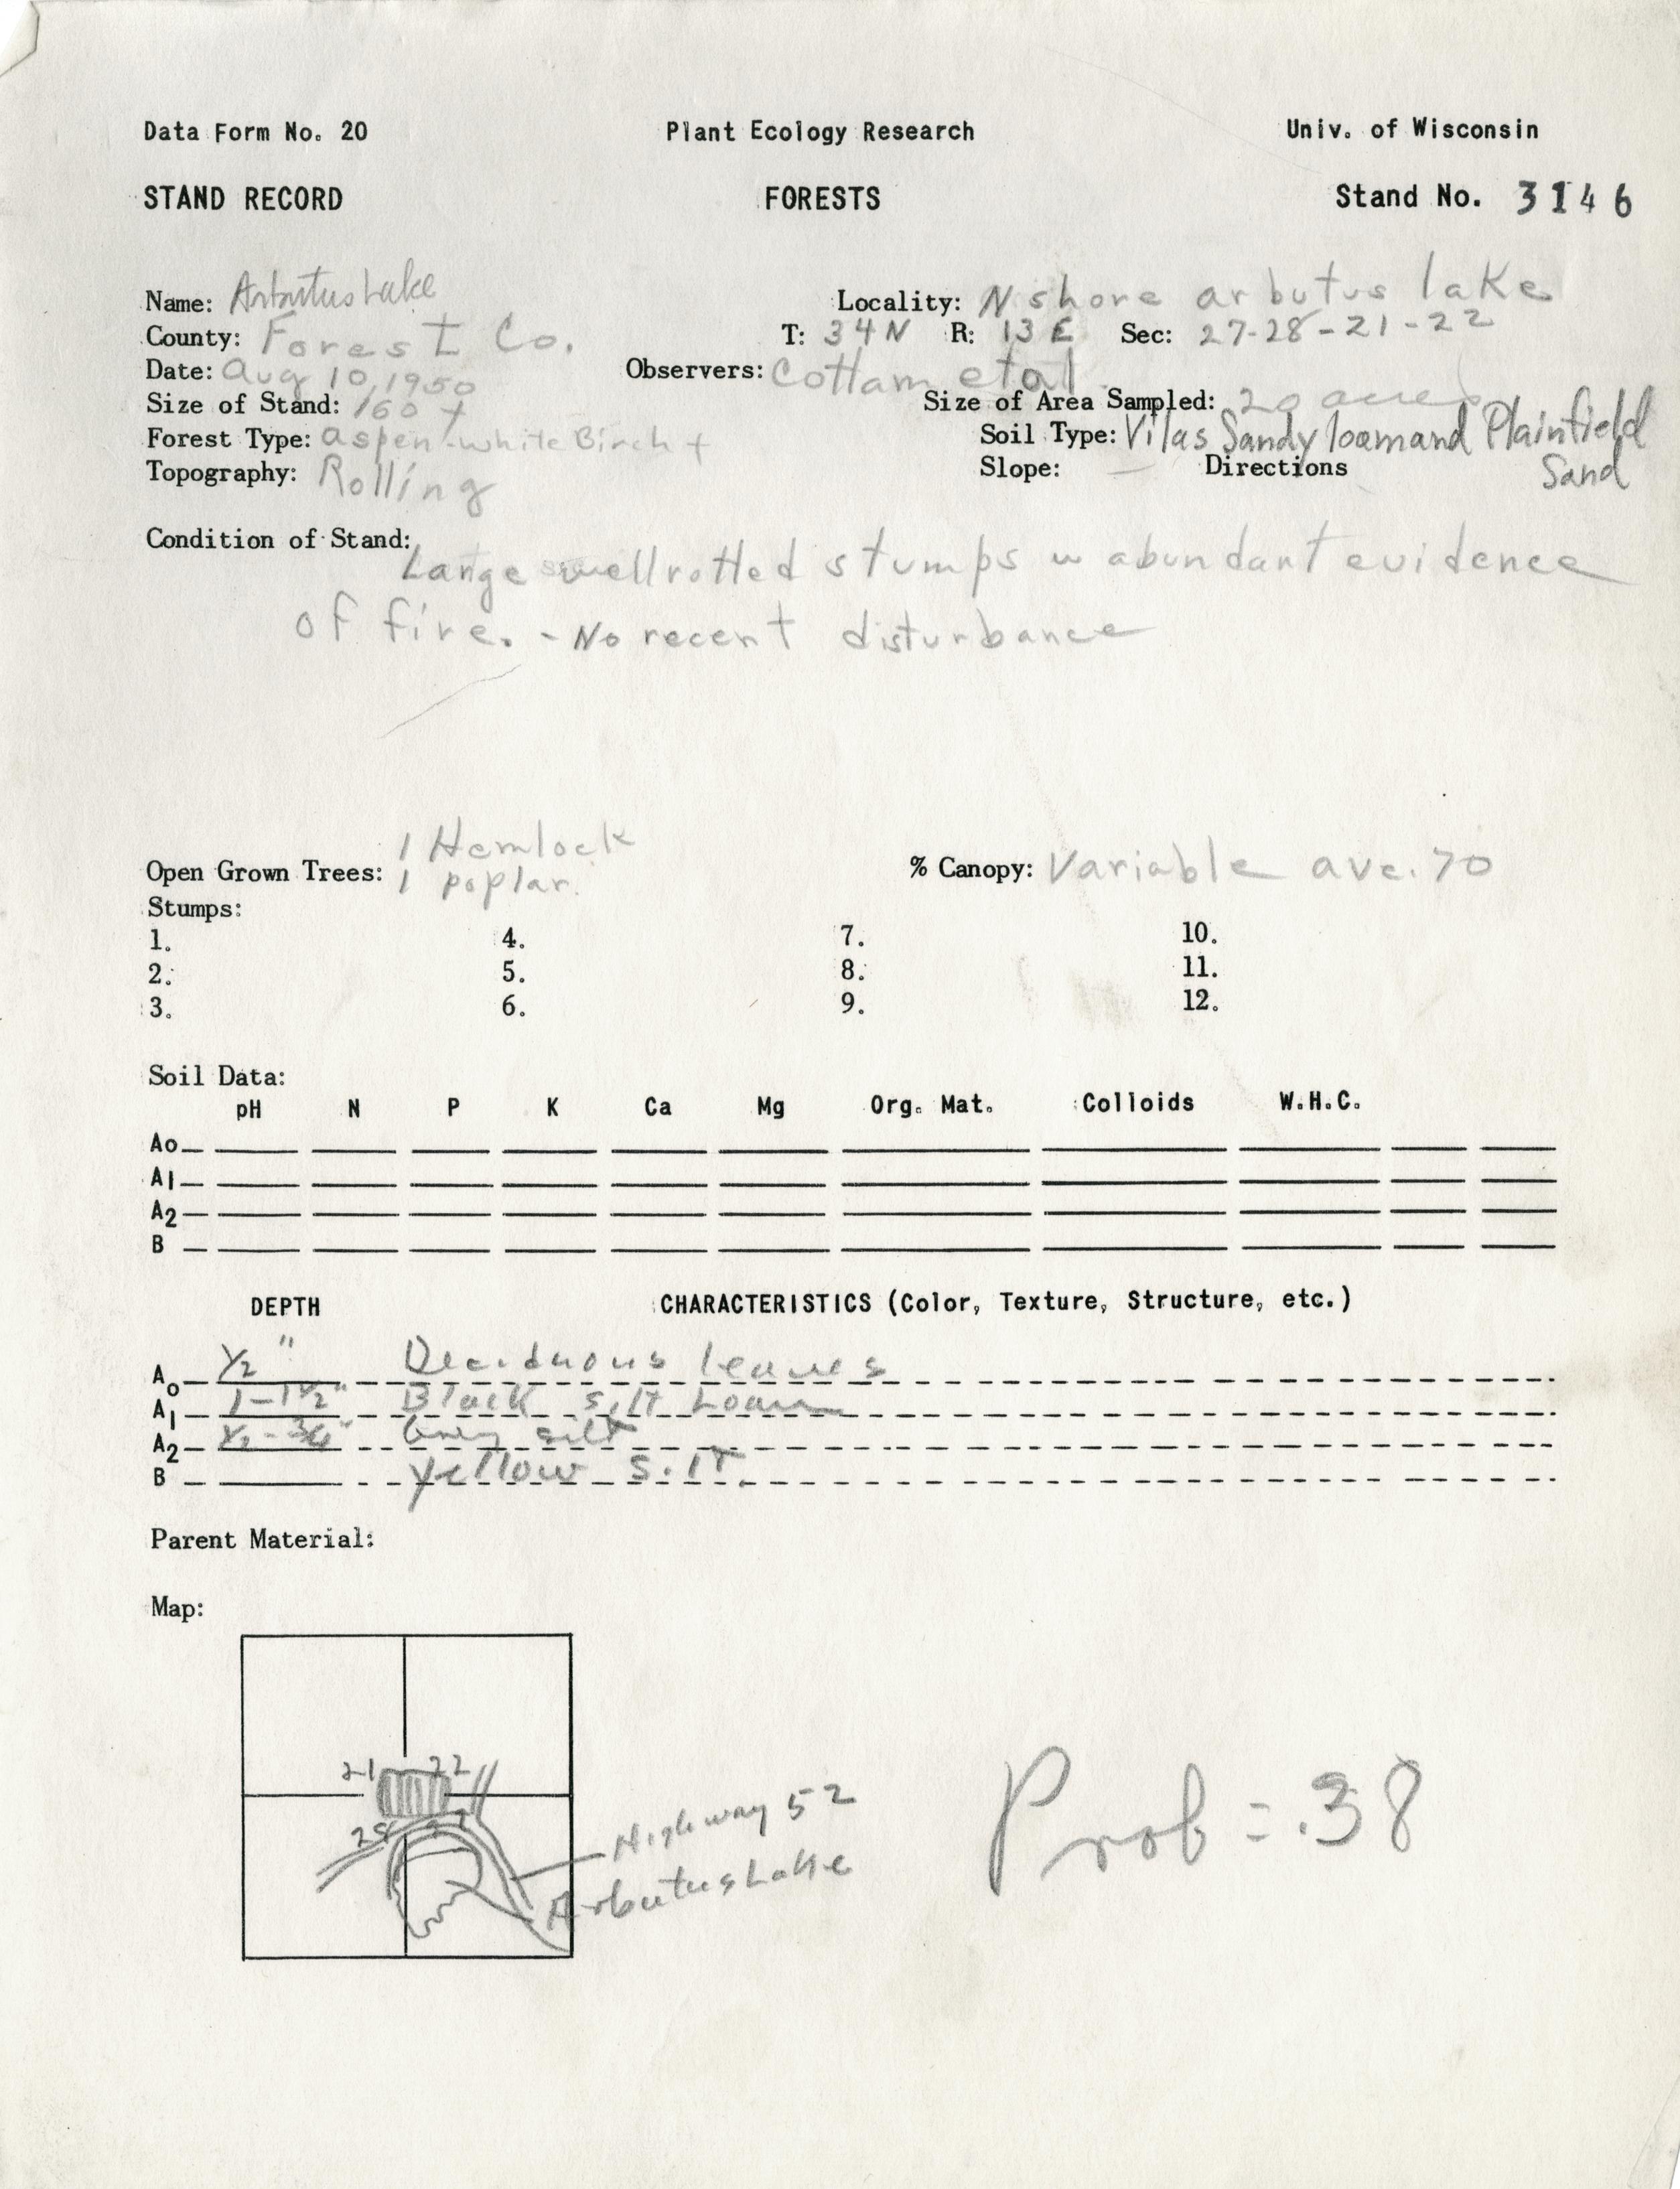 Data Form No. 20 Plant Ecology Research Univ. of Wisconsin
STAND RECORD FORESTS Stand No. 3146
Name: Arbutus Lake Locality: N shore arbutus lake
County: Forest Co. T: 34N R: 13E Sec: 27-28-21-22
Date: Aug 10, 1950 Observers: Cottam et al
Size of Stand: 160 + Size of Area Sampled: 20 acres
Forest Type: aspen-white Birch + Soil Type: Vilas Sandy loam and Plainfield
Topography: Rolling Slope: — Directions Sand
Condition of Stand:
Large well rotted stumps w abundant evidence
of fire. - No recent disturbance
1 Hemlock
Open Grown Trees: 1 poplar. % Canopy: Variable ave. 70
Stumps:
1. 4. 7. 10.
2. 5. 8. 11.
3. 6. 9. 12.
Soil Data:
pH N P K Ca Mg Org. Mat. Colloids W.H.C.
Ao
A1
A2
B
DEPTH CHARACTERISTICS (Color, Texture, Structure, etc.)
Ao 1/2" Deciduous leaves
A1 1-1 1/2" Black silt Loam
A2 1/2-3/4" Grey silt
B yellow silt.
Parent Material:
Map:
21 22
28 27
Highway 52
Arbutus Lake
Prob = .38